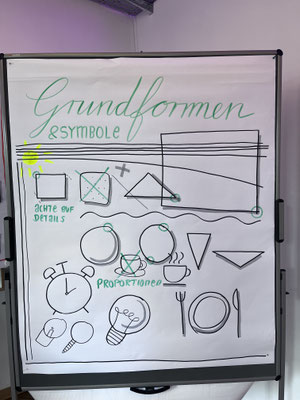 Grundformen
& SYMBOLE
ACHTE AUF
DETAILS
PROPORTIONEN